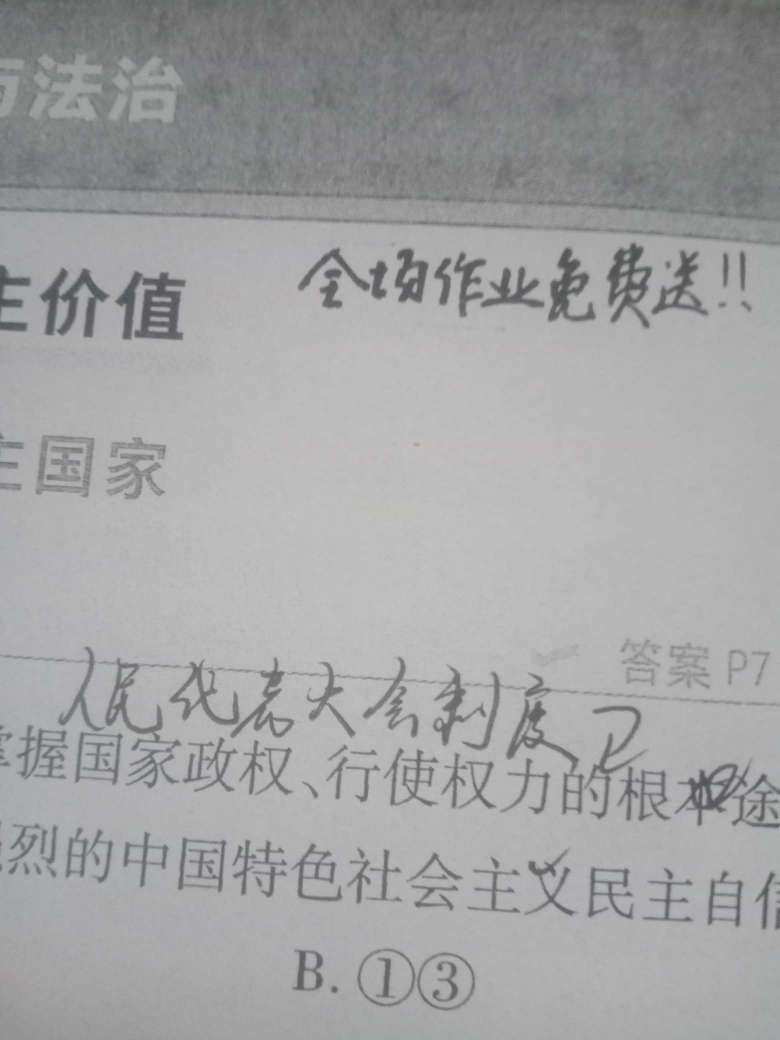 与法治
全场作业免费送!!
主价值
主国家
答案 P7
人民代表大会制度
掌握国家政权、行使权力的根本途
强烈的中国特色社会主义民主自信
B. ①③